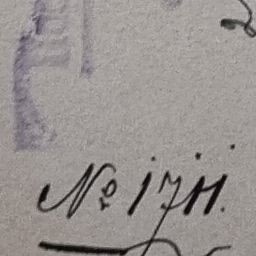 № 1711.